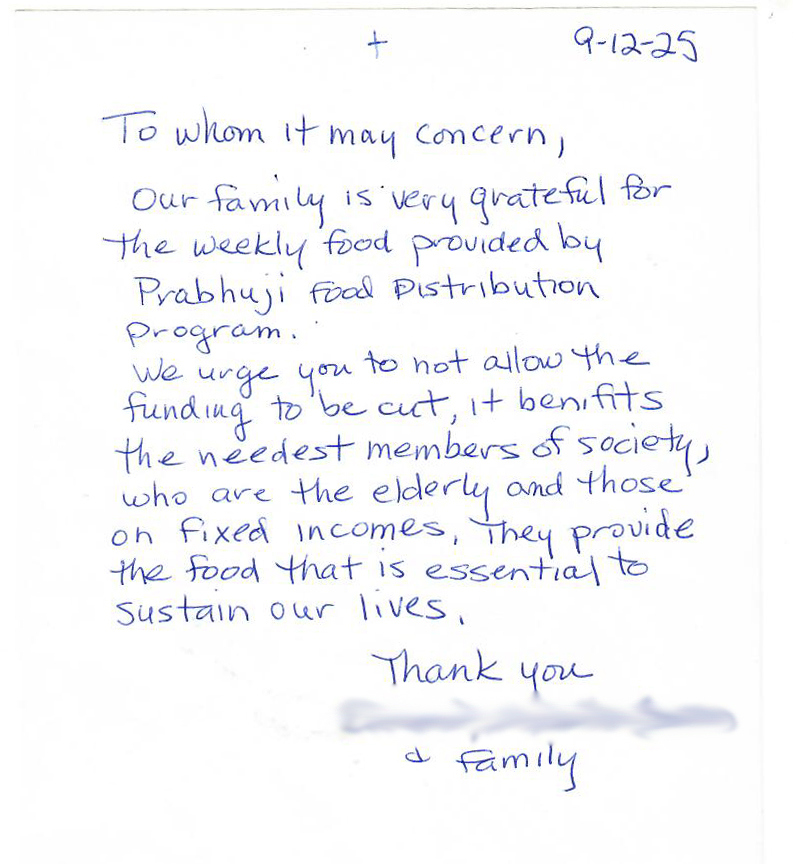 + 9-12-25
To whom it may concern,
Our family is very grateful for
the weekly food provided by
Prabhuji Food Distribution
program.
We urge you to not allow the
funding to be cut, it benifits
the needest members of society,
who are the elderly and those
on fixed incomes. They provide
the food that is essential to
sustain our lives.
Thank you
& family